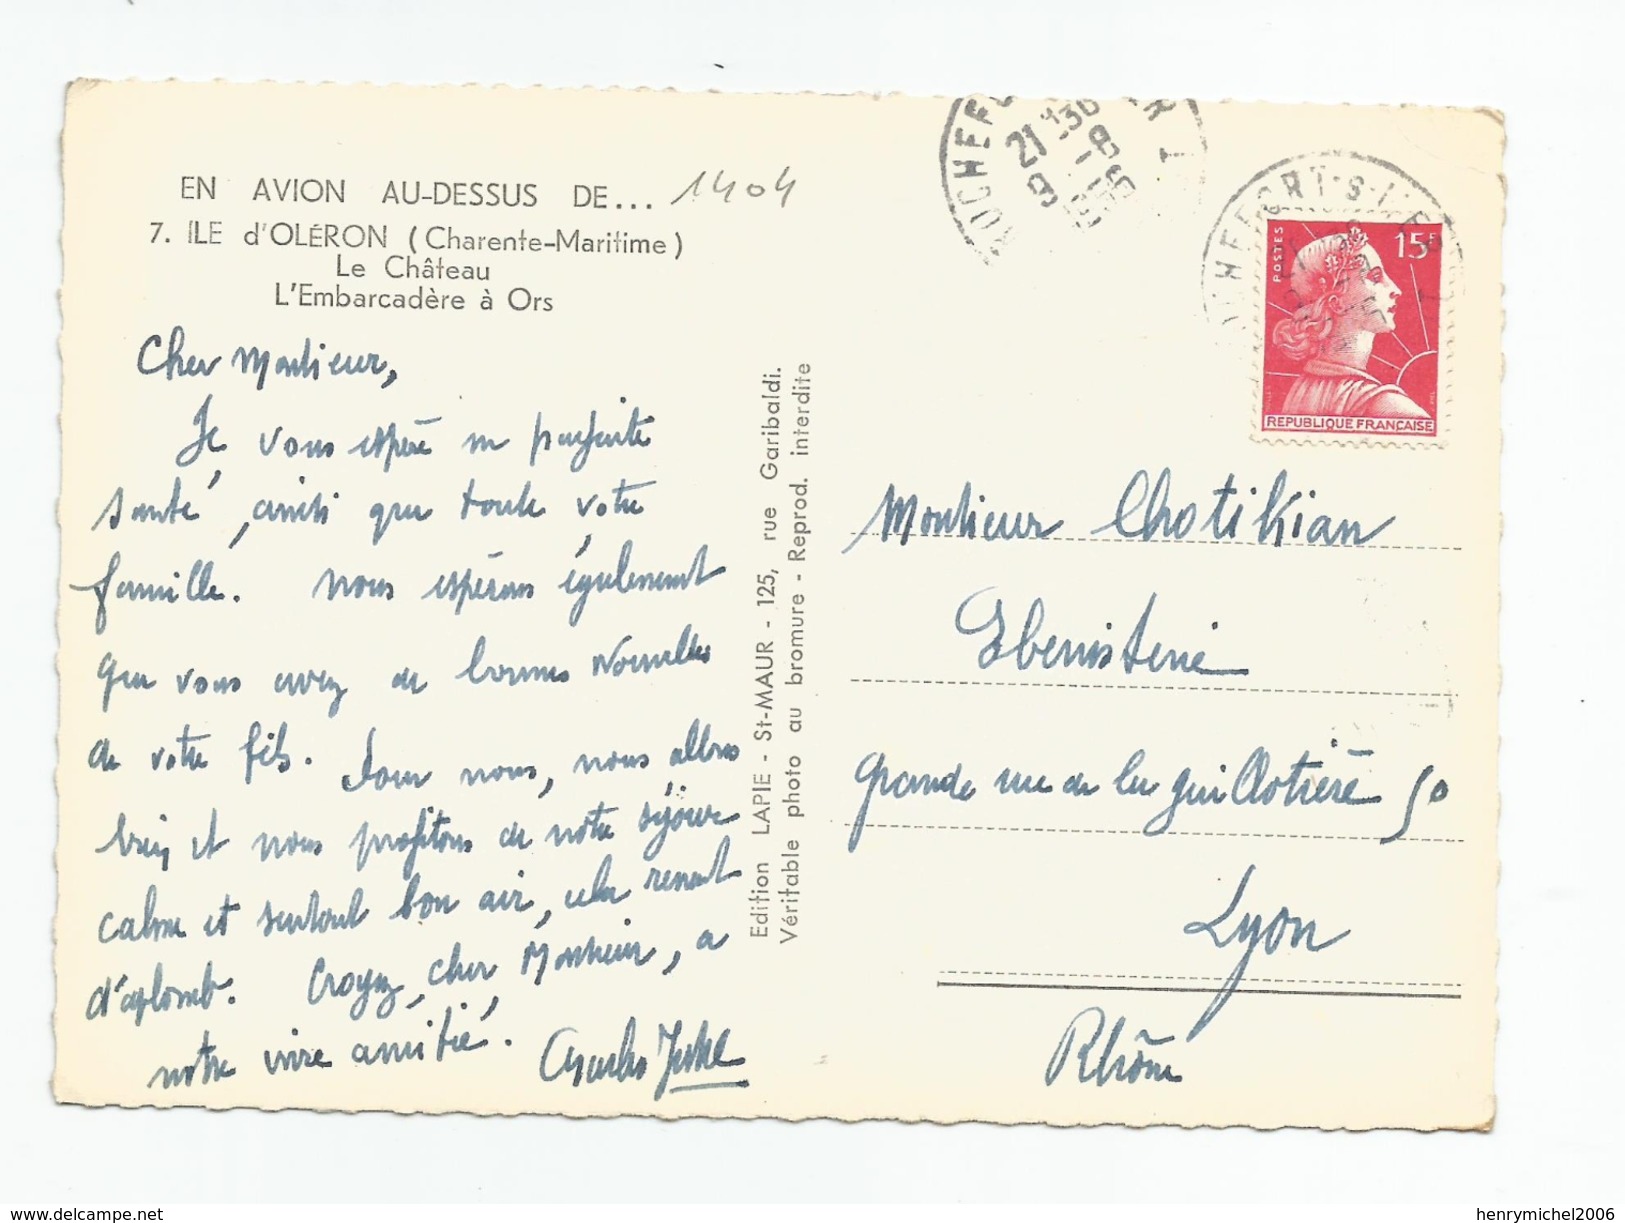 EN AVION AU-DESSUS DE... 1404
7. ILE d'OLÉRON (Charente-Maritime)
Le Château
L'Embarcadère à Ors
Cher Monsieur,
Je vous espère en parfaite
santé, ainsi que toute votre
famille. Nous espérons également
que vous avez de bonnes nouvelles
de votre fils. Pour nous, nous allons
bien et nous profitons de notre séjour
calme et surtout bon air, cela remet
d'aplomb. Croyez, cher Monsieur, a
notre vive amitié.
Charles
Edition LAPIE - St-MAUR - 125, rue Garibaldi.
Véritable photo au bromure - Reprod. interdite
21 30
9 -8
POSTES
15F
REPUBLIQUE FRANÇAISE
Monsieur Chotikian
Ebenisterie
grande rue de la guillotière 50
Lyon
Rhône
www.delcampe.net
henrymichel2006